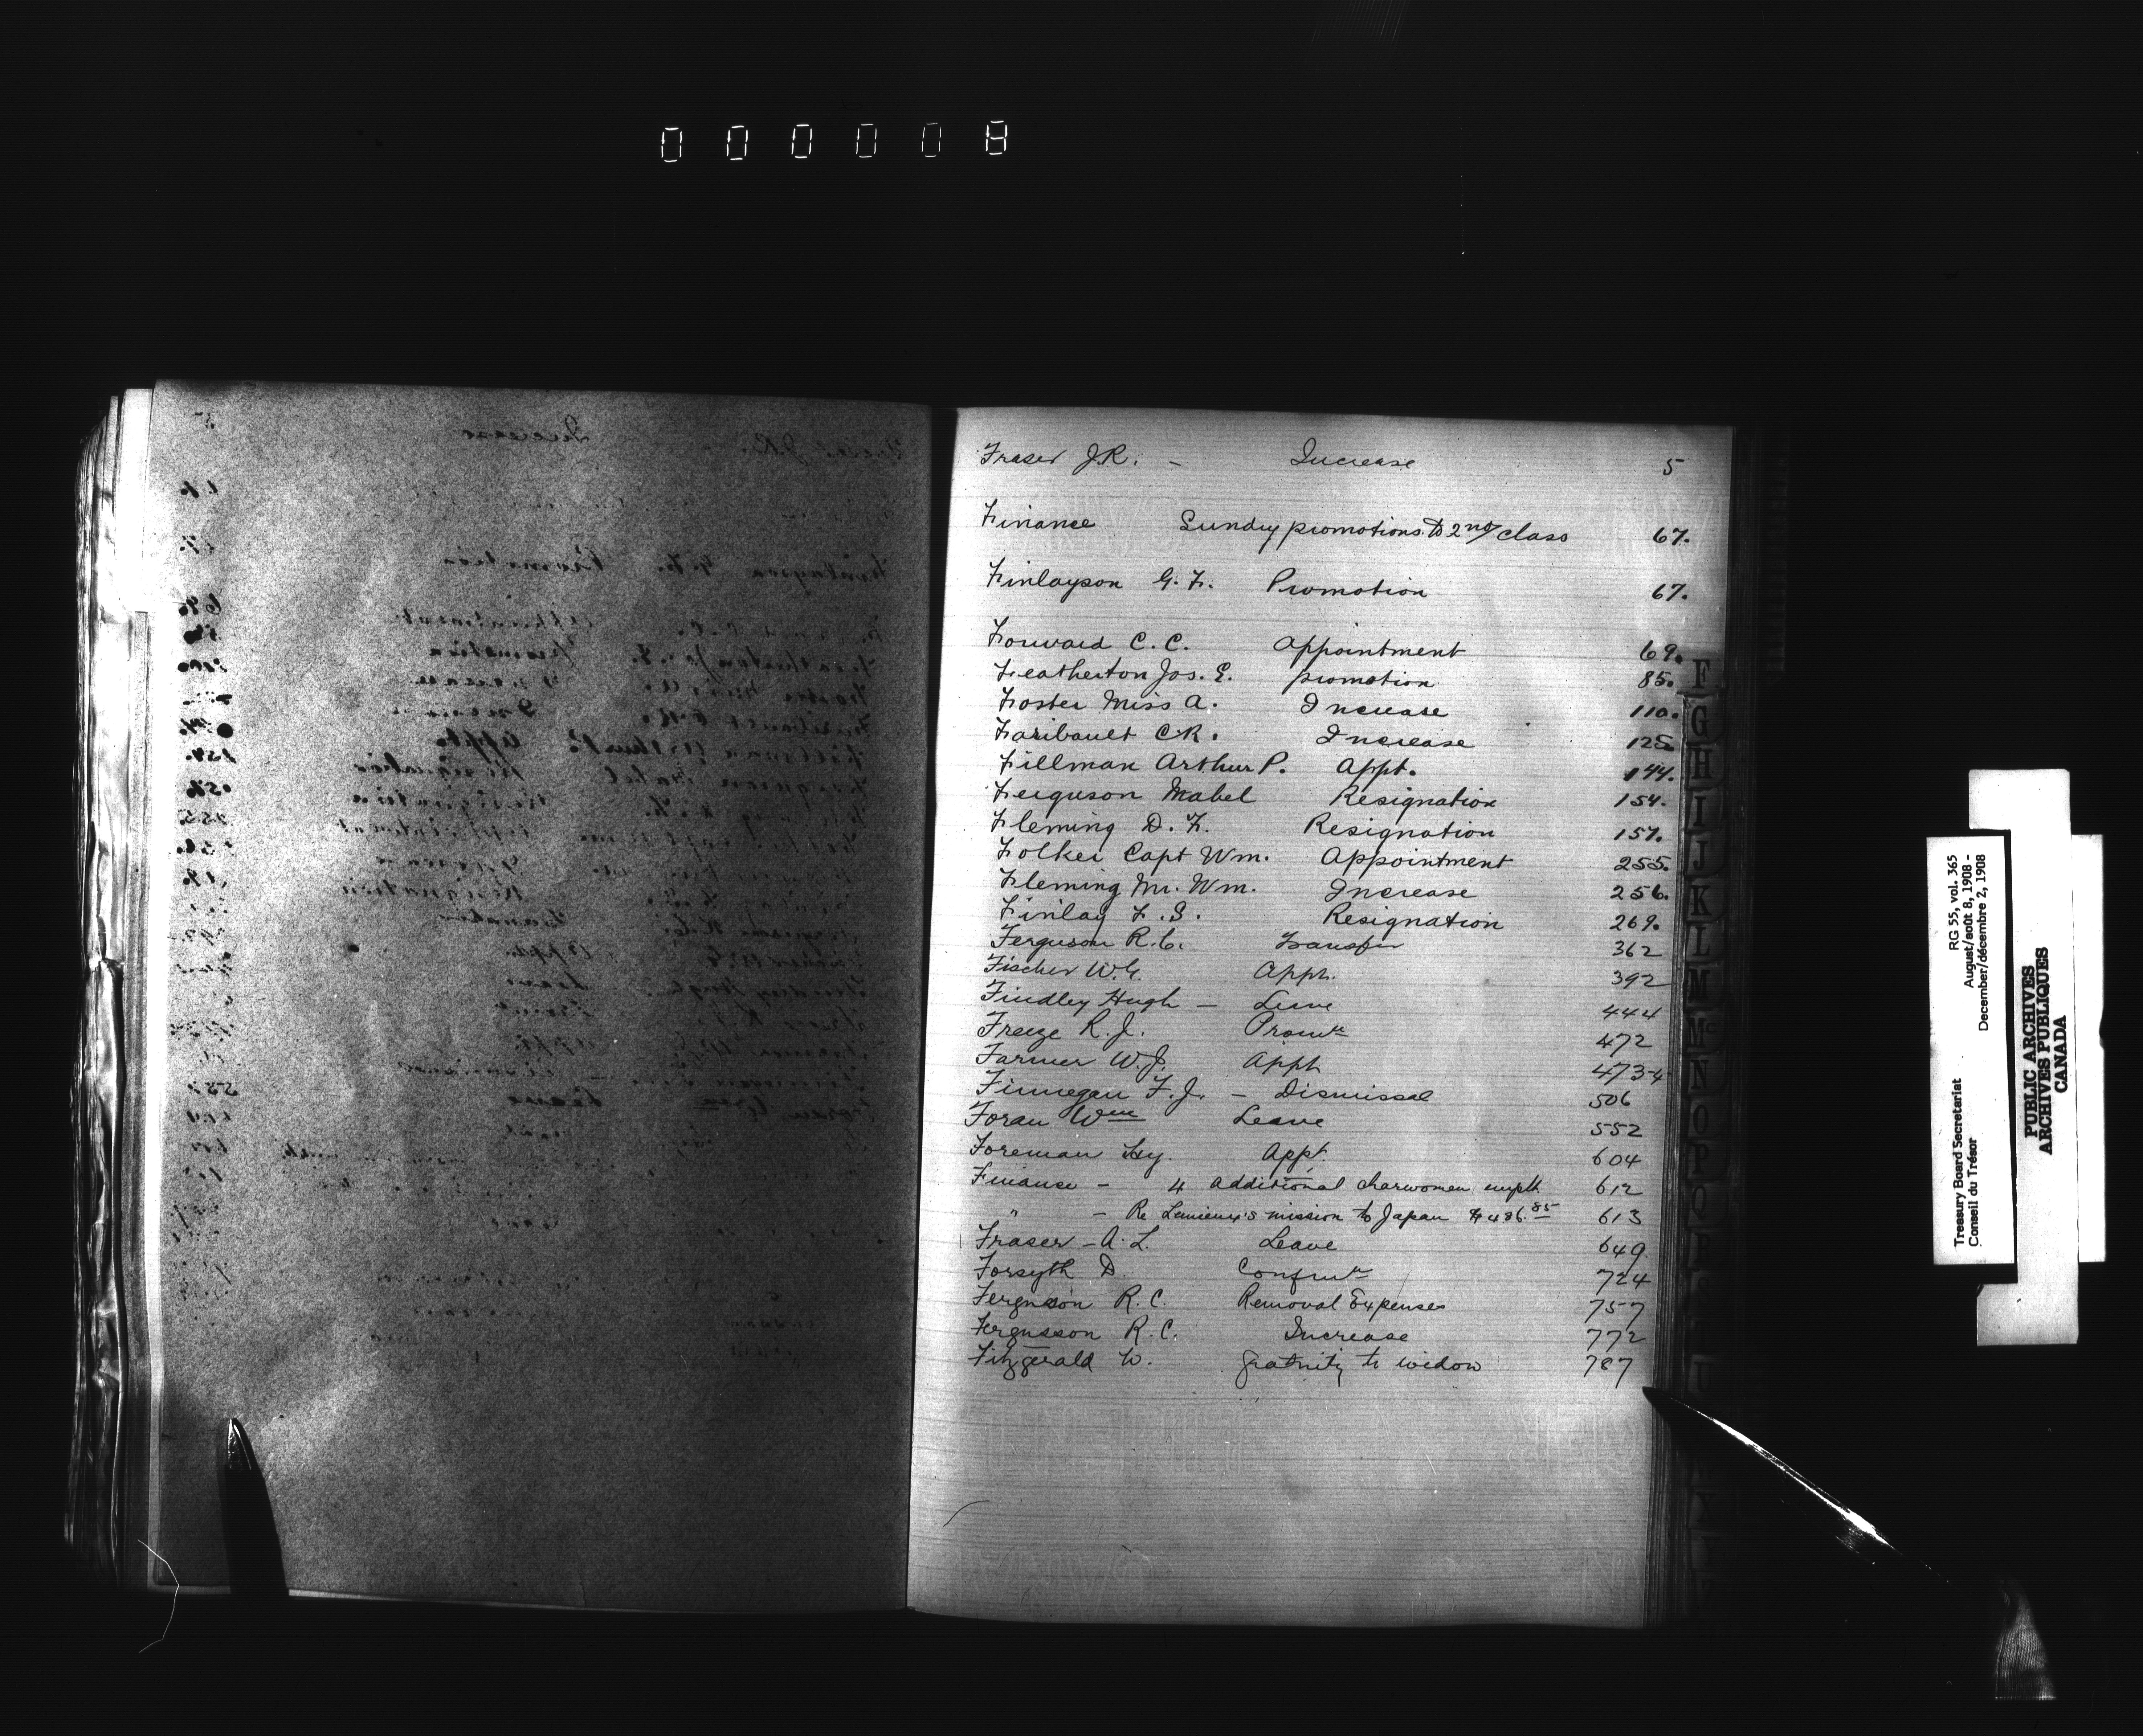 000008
Fraser J.R. - Increase 5
Finance Sundry promotions to 2nd class 67.
Finlayson G. F. Promotion 67.
Forward C. C. Appointment 69.
Featherton Jos. E. promotion 85.
Foster Miss A. Increase 110.
Faribault C.R. Increase 125.
Fillman Arthur P. Appt. 144.
Ferguson Mabel Resignation 154.
Fleming D. F. Resignation 157.
Folker Capt Wm. Appointment 255.
Fleming Mr. Wm. Increase 256.
Finlay F. S. Resignation 269.
Ferguson R.C. Transfer 362
Fischer W.G. Appt. 392
Findley Hugh - Leave 444
Freeze R. J. Promtn 472
Farmer W.J. Appt 473-4
Finnegan F. J. - Dismissal 506
Foran Wm Leave 552
Foreman Hy. Appt. 604
Finance - 4 additional charwomen emplt 612
" - Re Lemieux's mission to Japan $486.85 613
Fraser - A. L. Leave 649.
Forsyth D. Confmtn 724
Fergusson R. C. Removal Expenses 757
Fergusson R. C. Increase 772
Fitzgerald W. gratuity to widow 787
F
G
H
I
J
K
L
M
Mc
N
O
P
Q
R
Treasury Board Secretariat RG 55, vol. 365
Conseil du Trésor August/août 8, 1908 -
December/décembre 2, 1908
PUBLIC ARCHIVES
ARCHIVES PUBLIQUES
CANADA